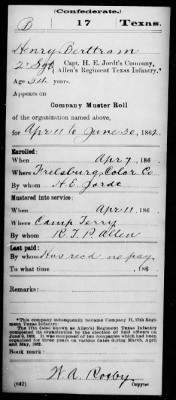 (Confederate.)
B 17 Texas.
Henry Bertram
2 Sgt, Capt. H. E. Jordt's Company,
Allen's Regiment Texas Infantry.*
Age 34 years.
Appears on
Company Muster Roll
of the organization named above,
for April 6 to June 30, 1862.
Enrolled:
When Apr 7, 186
Where Frelsburg, Color Co.
By whom H. E. Jorde
Mustered into service:
When Apr 11, 186
Where Camp Terry
By whom R. T. P. Allen
Last paid:
By whom Has recd no pay
To what time , 186
Remarks:
*This company subsequently became Company B, 17th Regiment Texas Infantry.
The 17th (also known as Allen's) Regiment Texas Infantry
completed its organization by the election of field officers on
June 9, 1862. It was composed of ten companies which had been
organized for three years on various dates during March, April
and May, 1862.
Book mark:
(642) W. A. Rosby
Copyist.